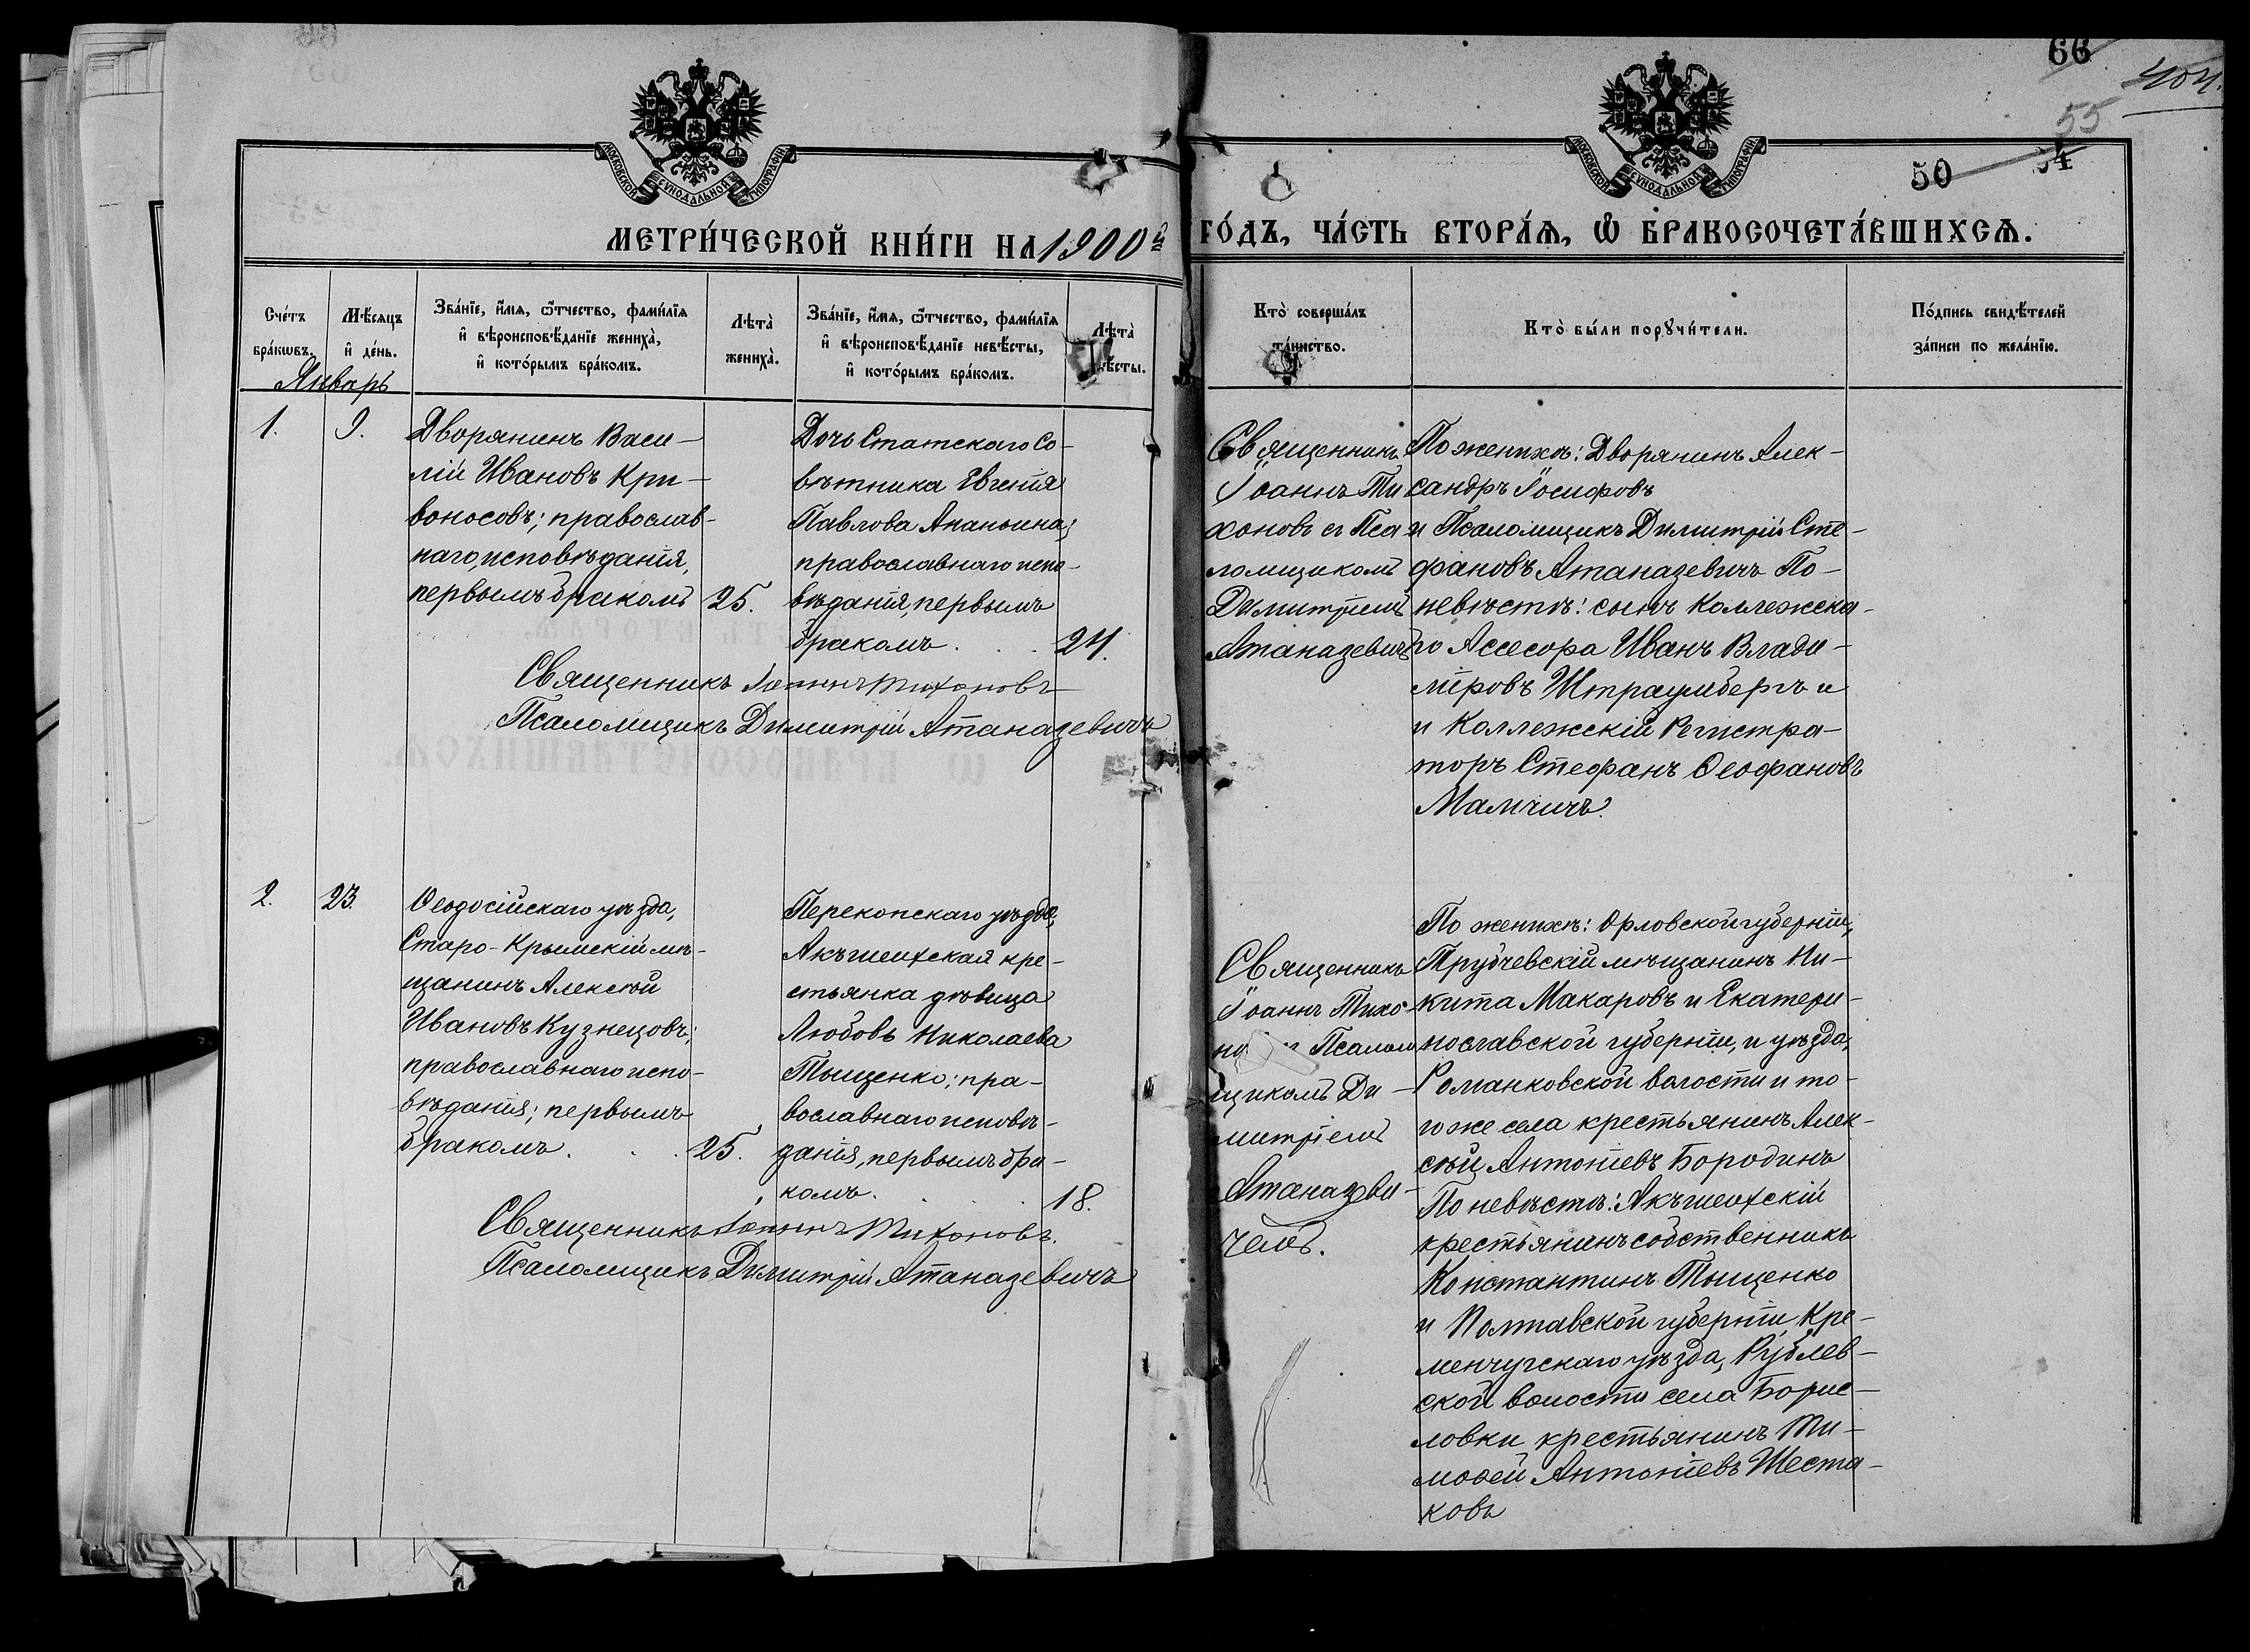 66
404.
55
50
54
МОСКОВСКОЙ СѴНОДАЛЬНОЙ ТИПОГРАФІИ
МОСКОВСКОЙ СѴНОДАЛЬНОЙ ТИПОГРАФІИ
МЕТРИ́ЧЕСКОЙ КНИ́ГИ НА 1900й ГО́ДЪ, ЧА́СТЬ ВТОРА́Ѧ, Ѡ БРАКОСОЧЕТА́ВШИХСѦ.
Сче́тъ бра́кѡвъ.
Мѣ́сяцъ и҆ де́нь.
Зва́нїе, и҆́мя, ѻ҆́тчество, фами́лїя
и҆ вѣроисповѣ́данїе жениха̀,
и҆ кото́рымъ бра́комъ.
Лѣта̀ жениха̀.
Зва́нїе, и҆́мя, ѻ҆́тчество, фами́лїя
и҆ вѣроисповѣ́данїе невѣ́сты,
и҆ кото́рымъ бра́комъ.
Лѣта̀
Кто̀ соверша́лъ
та́инство.
Кто̀ бы́ли порꙋчи́тели.
По́дпись свидѣ́телей
за́писи по жела́нїю.
Январь
1.
9.
Дворянинъ Васи-
лій Ивановъ Кри-
воносовъ; православ-
наго исповѣданія,
первымъ бракомъ
25.
Дочь Статскаго Со-
вѣтника Евгенія
Павлова Ананьина;
православнаго испо-
вѣданія, первымъ
бракомъ. . .
24.
Священникъ
Іоаннъ Ти
хоновъ съ Пса
ломщикомъ
Димитріемъ
Атаназевичъ
По женихѣ: Дворянинъ Алек-
сандръ Іосифовъ
и Псаломщикъ Димитрій Сте-
фановъ Атаназевичъ По-
невѣстѣ: сынъ Коллежска-
го Ассесора Иванъ Влади-
міровъ Штраумбергъ и
и Коллежскій Регистра-
торъ Стефанъ Ѳеофановъ
Мамчичъ.
Священникъ Іоаннъ Тихоновъ
Псаломщикъ Димитрій Атаназевичъ
2.
23.
Ѳеодосійскаго уѣзда,
Старо-Крымскій мѣ-
щанинъ Алексѣй
Ивановъ Кузнецовъ;
православнаго испо-
вѣданія; первымъ
бракомъ. . .
25.
Перекопскаго уѣзда,
Акъшеихская кре-
стьянка дѣвица
Любовь Николаева
Тыщенко; пра-
вославнаго исповѣ-
данія, первымъ бра-
комъ. . .
18.
Священникъ
Іоаннъ Тихо-
Псалом
щикомъ Ди-
митріемъ
Атаназеви-
чемъ.
По женихѣ: Орловской губерніи,
Трубчевскій мѣщанинъ Ни-
кита Макаровъ и Екатери-
нославской губерніи, и уѣзда,
Романковской волости и то-
го же села крестьянинъ Алек-
сѣй Антоніевъ Бородинъ
По невѣстѣ: Акъшеихскій
крестьянинъ собственникъ
Константинъ Тыщенко
и Полтавской губерніи Кре-
менчугскаго уѣзда, Рублев-
ской волости села Борис-
ловки крестьянинъ Ти-
моѳей Антоніевъ Шеста-
ковъ
Священникъ Іоаннъ Тихоновъ.
Псаломщикъ Димитрій Атаназевичъ